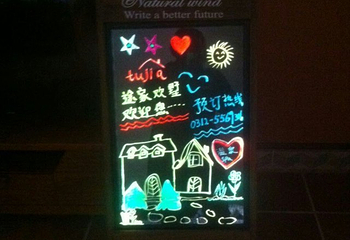 Natural wind
Write a better future
tujia
途家欢墅
欢迎您
预订热线